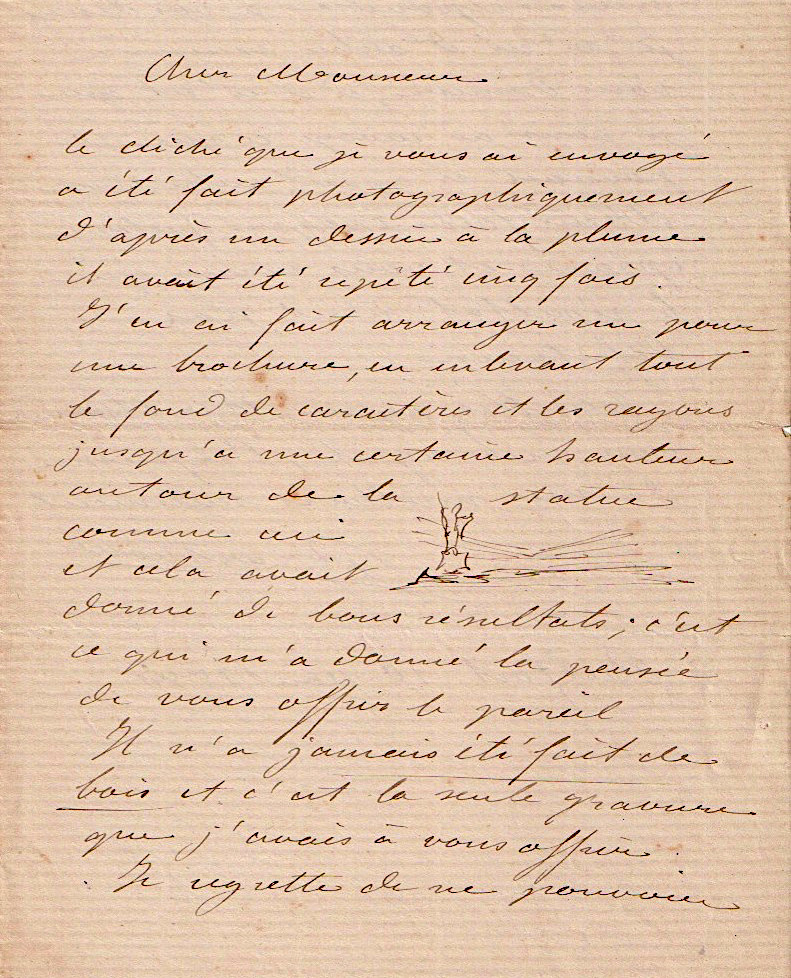 Cher Monsieur
le cliché que je vous ai envoyé
a été fait photographiquement
d'après un dessin à la plume
il avait été répété cinq fois.
J'en ai fait arranger un pour
une brochure, en enlevant tout
le fond de caractères et les rayons
jusqu'a une certaine hauteur
autour de la statue
comme ceci
et cela avait
donné de bons résultats; c'est
ce qui m'a donné la pensée
de vous offrir le pareil
Il n'a jamais été fait de
bois et c'est la seule gravure
que j'avais à vous offrir.
Je regrette de ne pouvoir